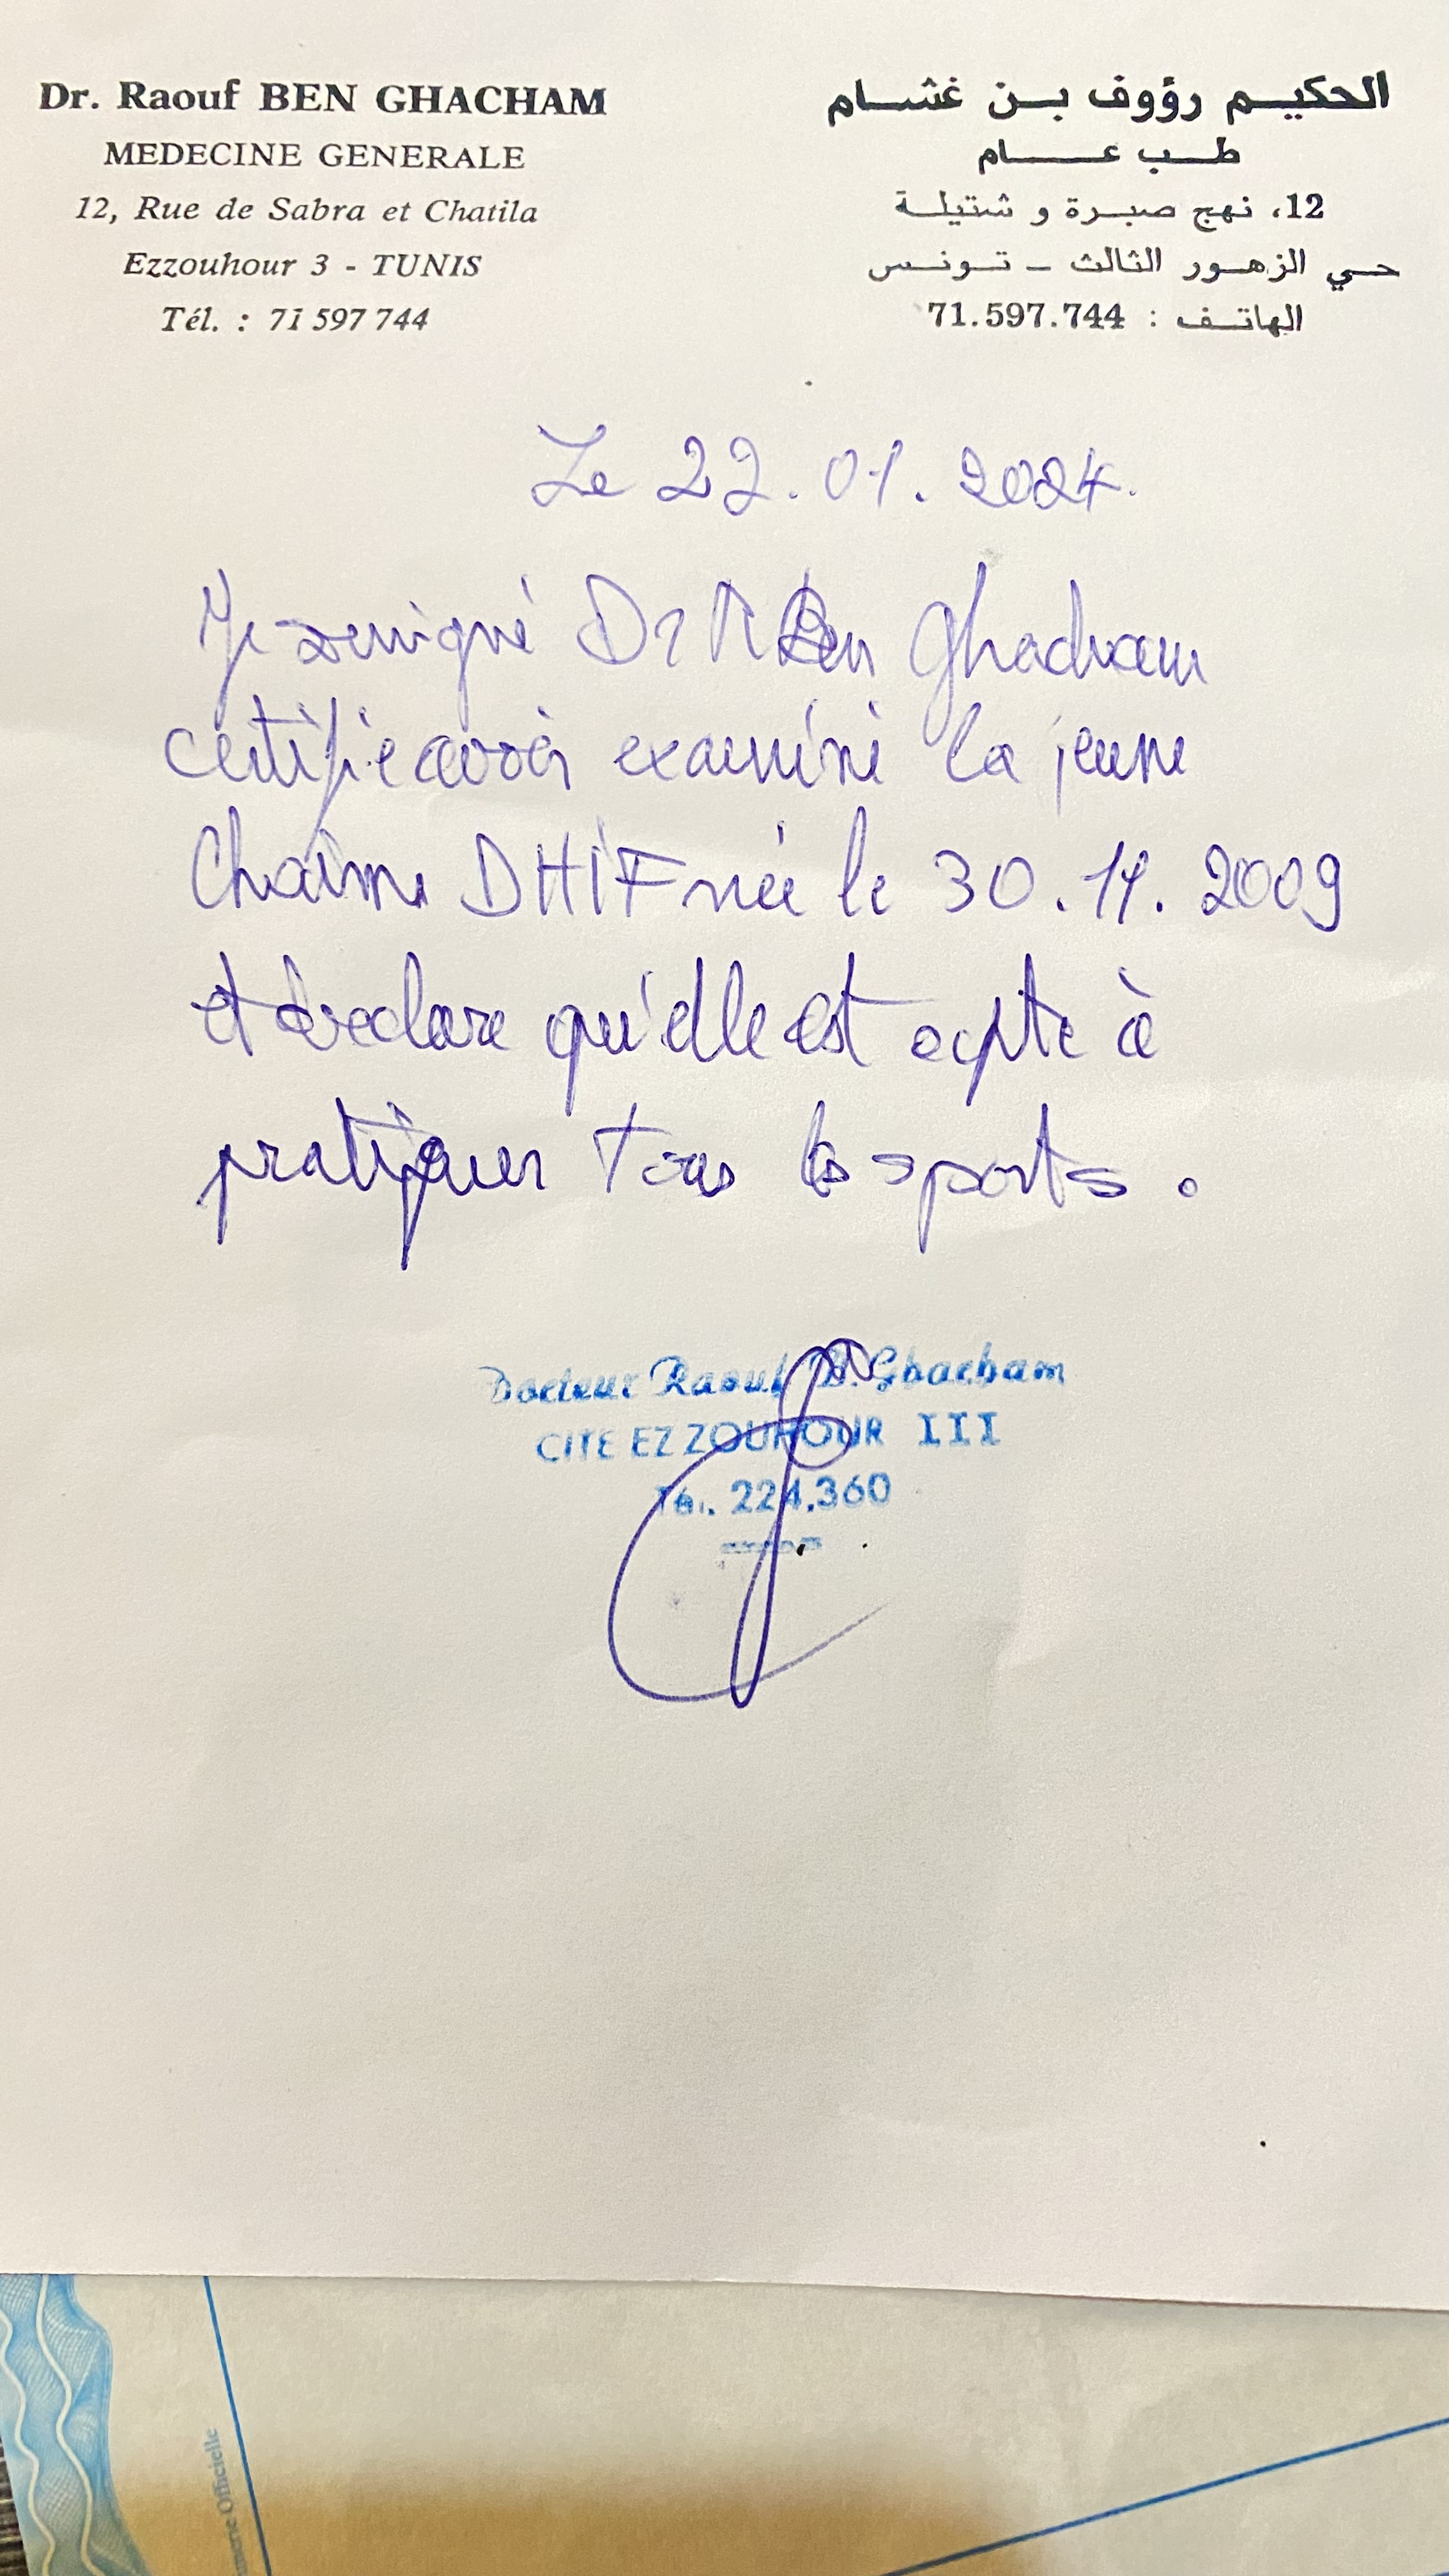 Dr. Raouf BEN GHACHAM
MEDECINE GENERALE
12, Rue de Sabra et Chatila
Ezzouhour 3 - TUNIS
Tél. : 71 597 744
الحكيم رؤوف بن غشام
طب عام
12، نهج صبرة و شتيلة
حي الزهور الثالث - تونس
الهاتف : 71.597.744
Le 22.01.2024.
Je soussigné Dr R Ben Ghacham
certifie avoir examiné la jeune
Chaima DHIF née le 30.11.2009
et déclare qu'elle est apte à
pratiquer tous les sports.
Docteur Raouf B. Ghacham
CITE EZ ZOUHOUR III
Tél. 224.360
Officielle